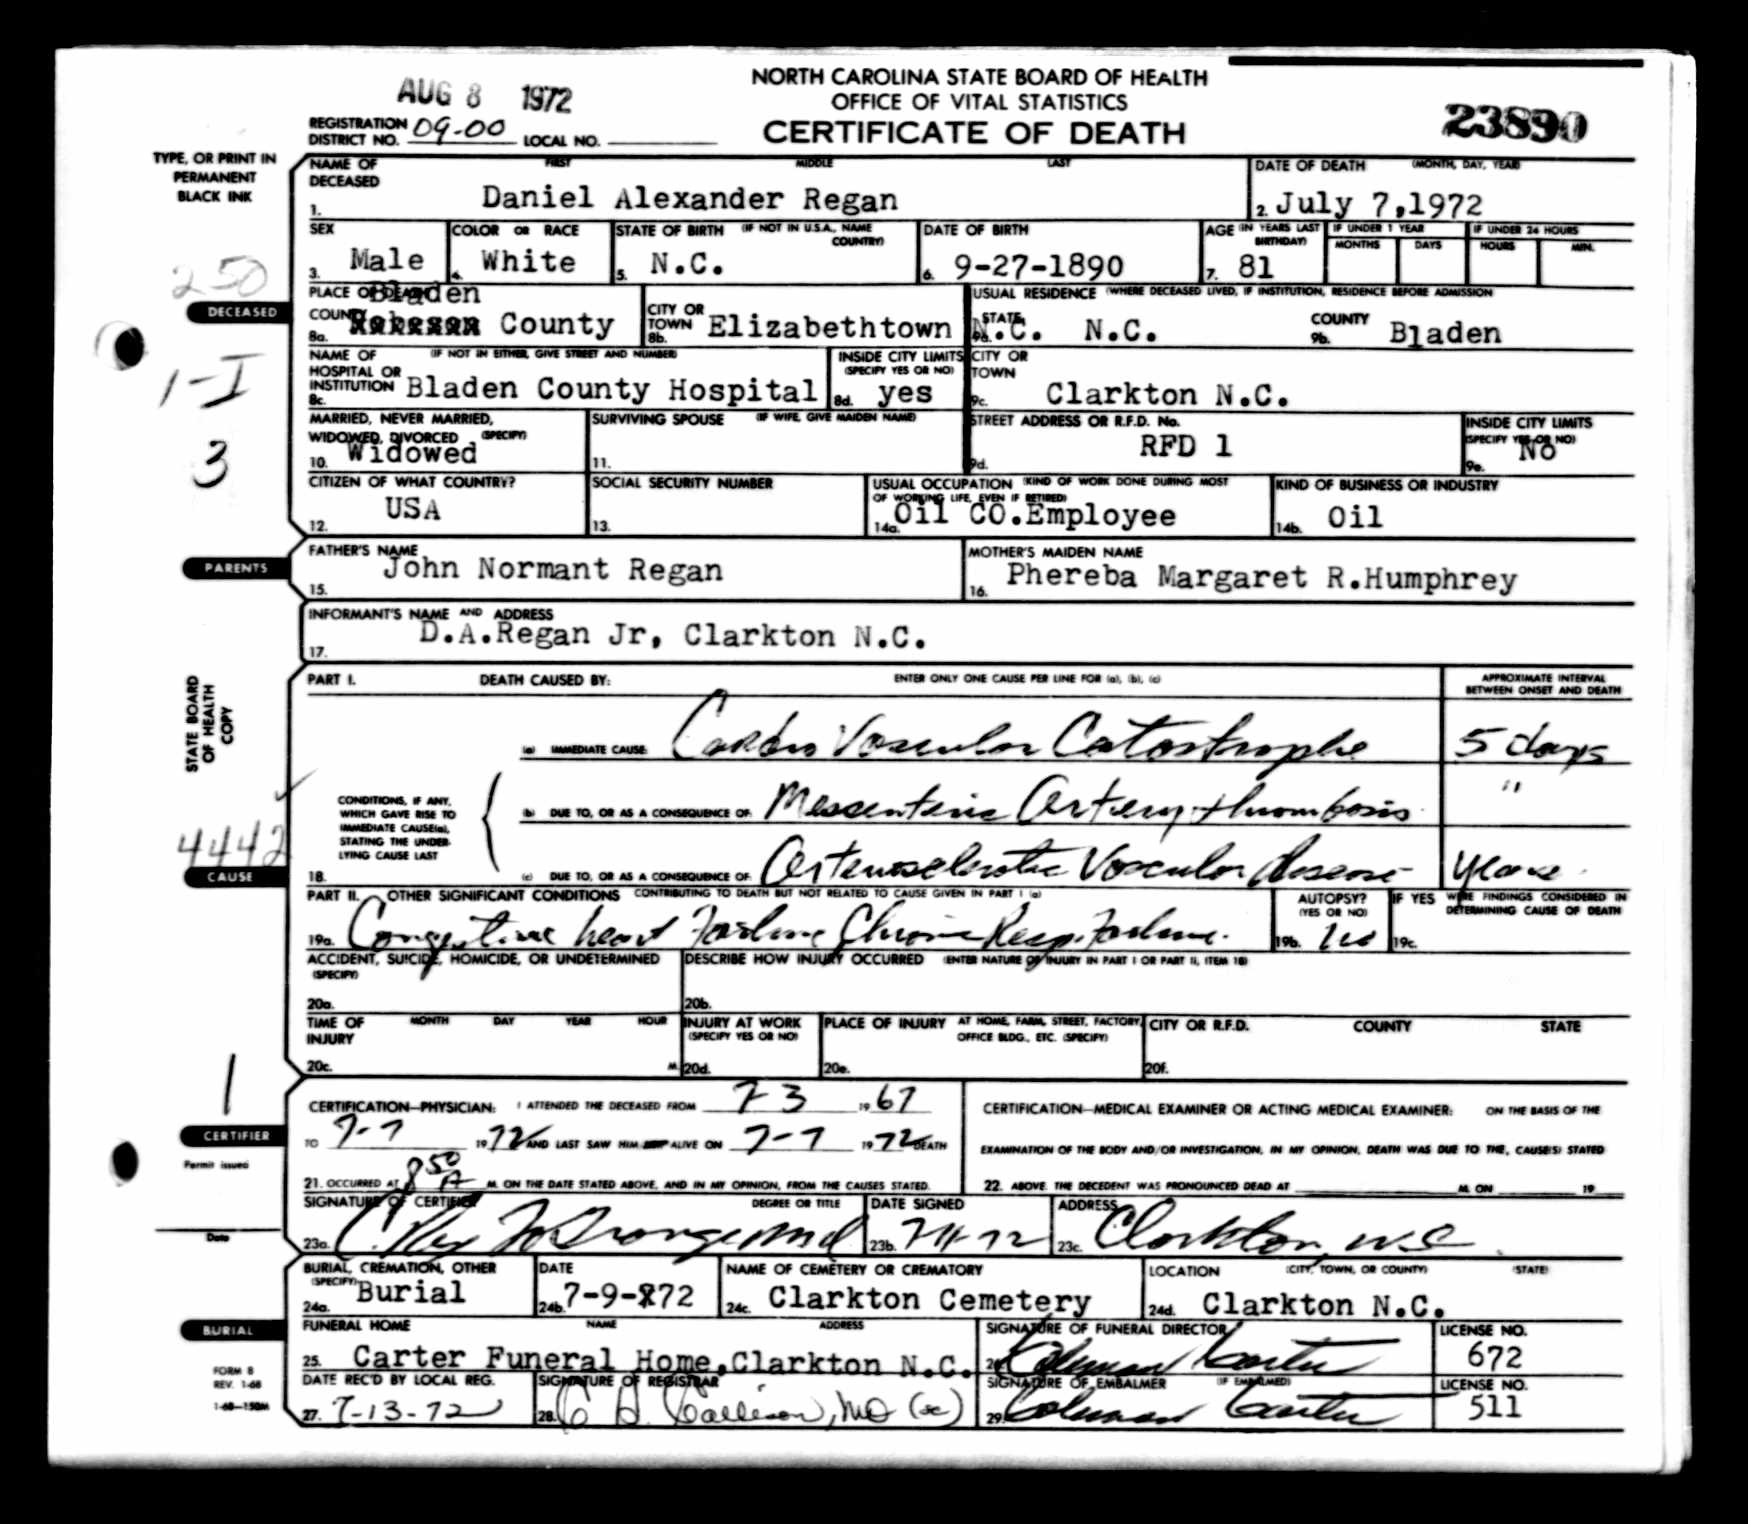 AUG 8 1972
NORTH CAROLINA STATE BOARD OF HEALTH
OFFICE OF VITAL STATISTICS
CERTIFICATE OF DEATH
23890
REGISTRATION DISTRICT NO. 09-00 LOCAL NO.
TYPE, OR PRINT IN
PERMANENT
BLACK INK
NAME OF DECEASED FIRST MIDDLE LAST
1. Daniel Alexander Regan
DATE OF DEATH (MONTH, DAY, YEAR)
2. July 7,1972
SEX
3. Male
COLOR OR RACE
4. White
STATE OF BIRTH (IF NOT IN U.S.A., NAME COUNTRY)
5. N.C.
DATE OF BIRTH
6. 9-27-1890
AGE (IN YEARS LAST BIRTHDAY)
7. 81
IF UNDER 1 YEAR
MONTHS DAYS
IF UNDER 24 HOURS
HOURS MIN.
250
DECEASED
1-I
3
PLACE OF DEATH
Bladen
COUNTY
8a. County
CITY OR TOWN
8b. Elizabethtown
USUAL RESIDENCE (WHERE DECEASED LIVED, IF INSTITUTION, RESIDENCE BEFORE ADMISSION
STATE
9a. N.C. N.C.
COUNTY
9b. Bladen
NAME OF HOSPITAL OR INSTITUTION (IF NOT IN EITHER, GIVE STREET AND NUMBER)
8c. Bladen County Hospital
INSIDE CITY LIMITS (SPECIFY YES OR NO)
8d. yes
CITY OR TOWN
9c. Clarkton N.C.
MARRIED, NEVER MARRIED,
WIDOWED, DIVORCED (SPECIFY)
10. Widowed
SURVIVING SPOUSE (IF WIFE, GIVE MAIDEN NAME)
11.
STREET ADDRESS OR R.F.D. No.
9d. RFD 1
INSIDE CITY LIMITS
(SPECIFY YES OR NO)
9e. No
CITIZEN OF WHAT COUNTRY?
12. USA
SOCIAL SECURITY NUMBER
13.
USUAL OCCUPATION (KIND OF WORK DONE DURING MOST
OF WORKING LIFE, EVEN IF RETIRED)
14a. Oil CO.Employee
KIND OF BUSINESS OR INDUSTRY
14b. Oil
PARENTS
FATHER'S NAME
15. John Normant Regan
MOTHER'S MAIDEN NAME
16. Phereba Margaret R.Humphrey
INFORMANT'S NAME AND ADDRESS
17. D.A.Regan Jr, Clarkton N.C.
STATE BOARD
OF HEALTH
COPY
PART I. DEATH CAUSED BY: ENTER ONLY ONE CAUSE PER LINE FOR (a), (b), (c)
APPROXIMATE INTERVAL
BETWEEN ONSET AND DEATH
(a) IMMEDIATE CAUSE: Cardio Vascular Catastrophe 5 days
CONDITIONS, IF ANY,
WHICH GAVE RISE TO
IMMEDIATE CAUSE(a),
STATING THE UNDER-
LYING CAUSE LAST
(b) DUE TO, OR AS A CONSEQUENCE OF: Messenteric Artery thrombosis "
4442
CAUSE
18.
(c) DUE TO, OR AS A CONSEQUENCE OF: Arteriosclerotic Vascular disease years
PART II. OTHER SIGNIFICANT CONDITIONS CONTRIBUTING TO DEATH BUT NOT RELATED TO CAUSE GIVEN IN PART I (a)
19a. Congestive heart Failure Chronic Resp. Failure.
AUTOPSY?
(YES OR NO)
19b.
IF YES WERE FINDINGS CONSIDERED IN
DETERMINING CAUSE OF DEATH
19c.
ACCIDENT, SUICIDE, HOMICIDE, OR UNDETERMINED
(SPECIFY)
20a.
DESCRIBE HOW INJURY OCCURRED (ENTER NATURE OF INJURY IN PART I OR PART II, ITEM 18)
20b.
TIME OF INJURY MONTH DAY YEAR HOUR
20c. M.
INJURY AT WORK
(SPECIFY YES OR NO)
20d.
PLACE OF INJURY AT HOME, FARM, STREET, FACTORY,
OFFICE BLDG., ETC. (SPECIFY)
20e.
CITY OR R.F.D. COUNTY STATE
20f.
1
CERTIFIER
Permit issued
Date
CERTIFICATION—PHYSICIAN: I ATTENDED THE DECEASED FROM 7-3 1967
TO 7-7 1972 AND LAST SAW HIM ALIVE ON 7-7 1972 DEATH
21. OCCURRED AT 8 50 A M. ON THE DATE STATED ABOVE, AND IN MY OPINION, FROM THE CAUSES STATED.
CERTIFICATION—MEDICAL EXAMINER OR ACTING MEDICAL EXAMINER: ON THE BASIS OF THE
EXAMINATION OF THE BODY AND/OR INVESTIGATION, IN MY OPINION, DEATH WAS DUE TO THE, CAUSE(S) STATED
22. ABOVE. THE DECEDENT WAS PRONOUNCED DEAD AT M. ON 19
SIGNATURE OF CERTIFIER DEGREE OR TITLE
23a.
DATE SIGNED
23b. 7-11-72
ADDRESS
23c. Clarkton, N.C.
BURIAL, CREMATION, OTHER
(SPECIFY)
24a. Burial
DATE
24b. 7-9-72
NAME OF CEMETERY OR CREMATORY
24c. Clarkton Cemetery
LOCATION (CITY, TOWN, OR COUNTY) (STATE)
24d. Clarkton N.C.
BURIAL
FUNERAL HOME NAME ADDRESS
25. Carter Funeral Home,Clarkton N.C.
SIGNATURE OF FUNERAL DIRECTOR
26. Coleman Carter
LICENSE NO.
672
FORM 8
REV. 1-68
1-68—150M
DATE REC'D BY LOCAL REG.
27. 7-13-72
SIGNATURE OF REGISTRAR
28.
SIGNATURE OF EMBALMER (IF EMBALMED)
29. Coleman Carter
LICENSE NO.
511